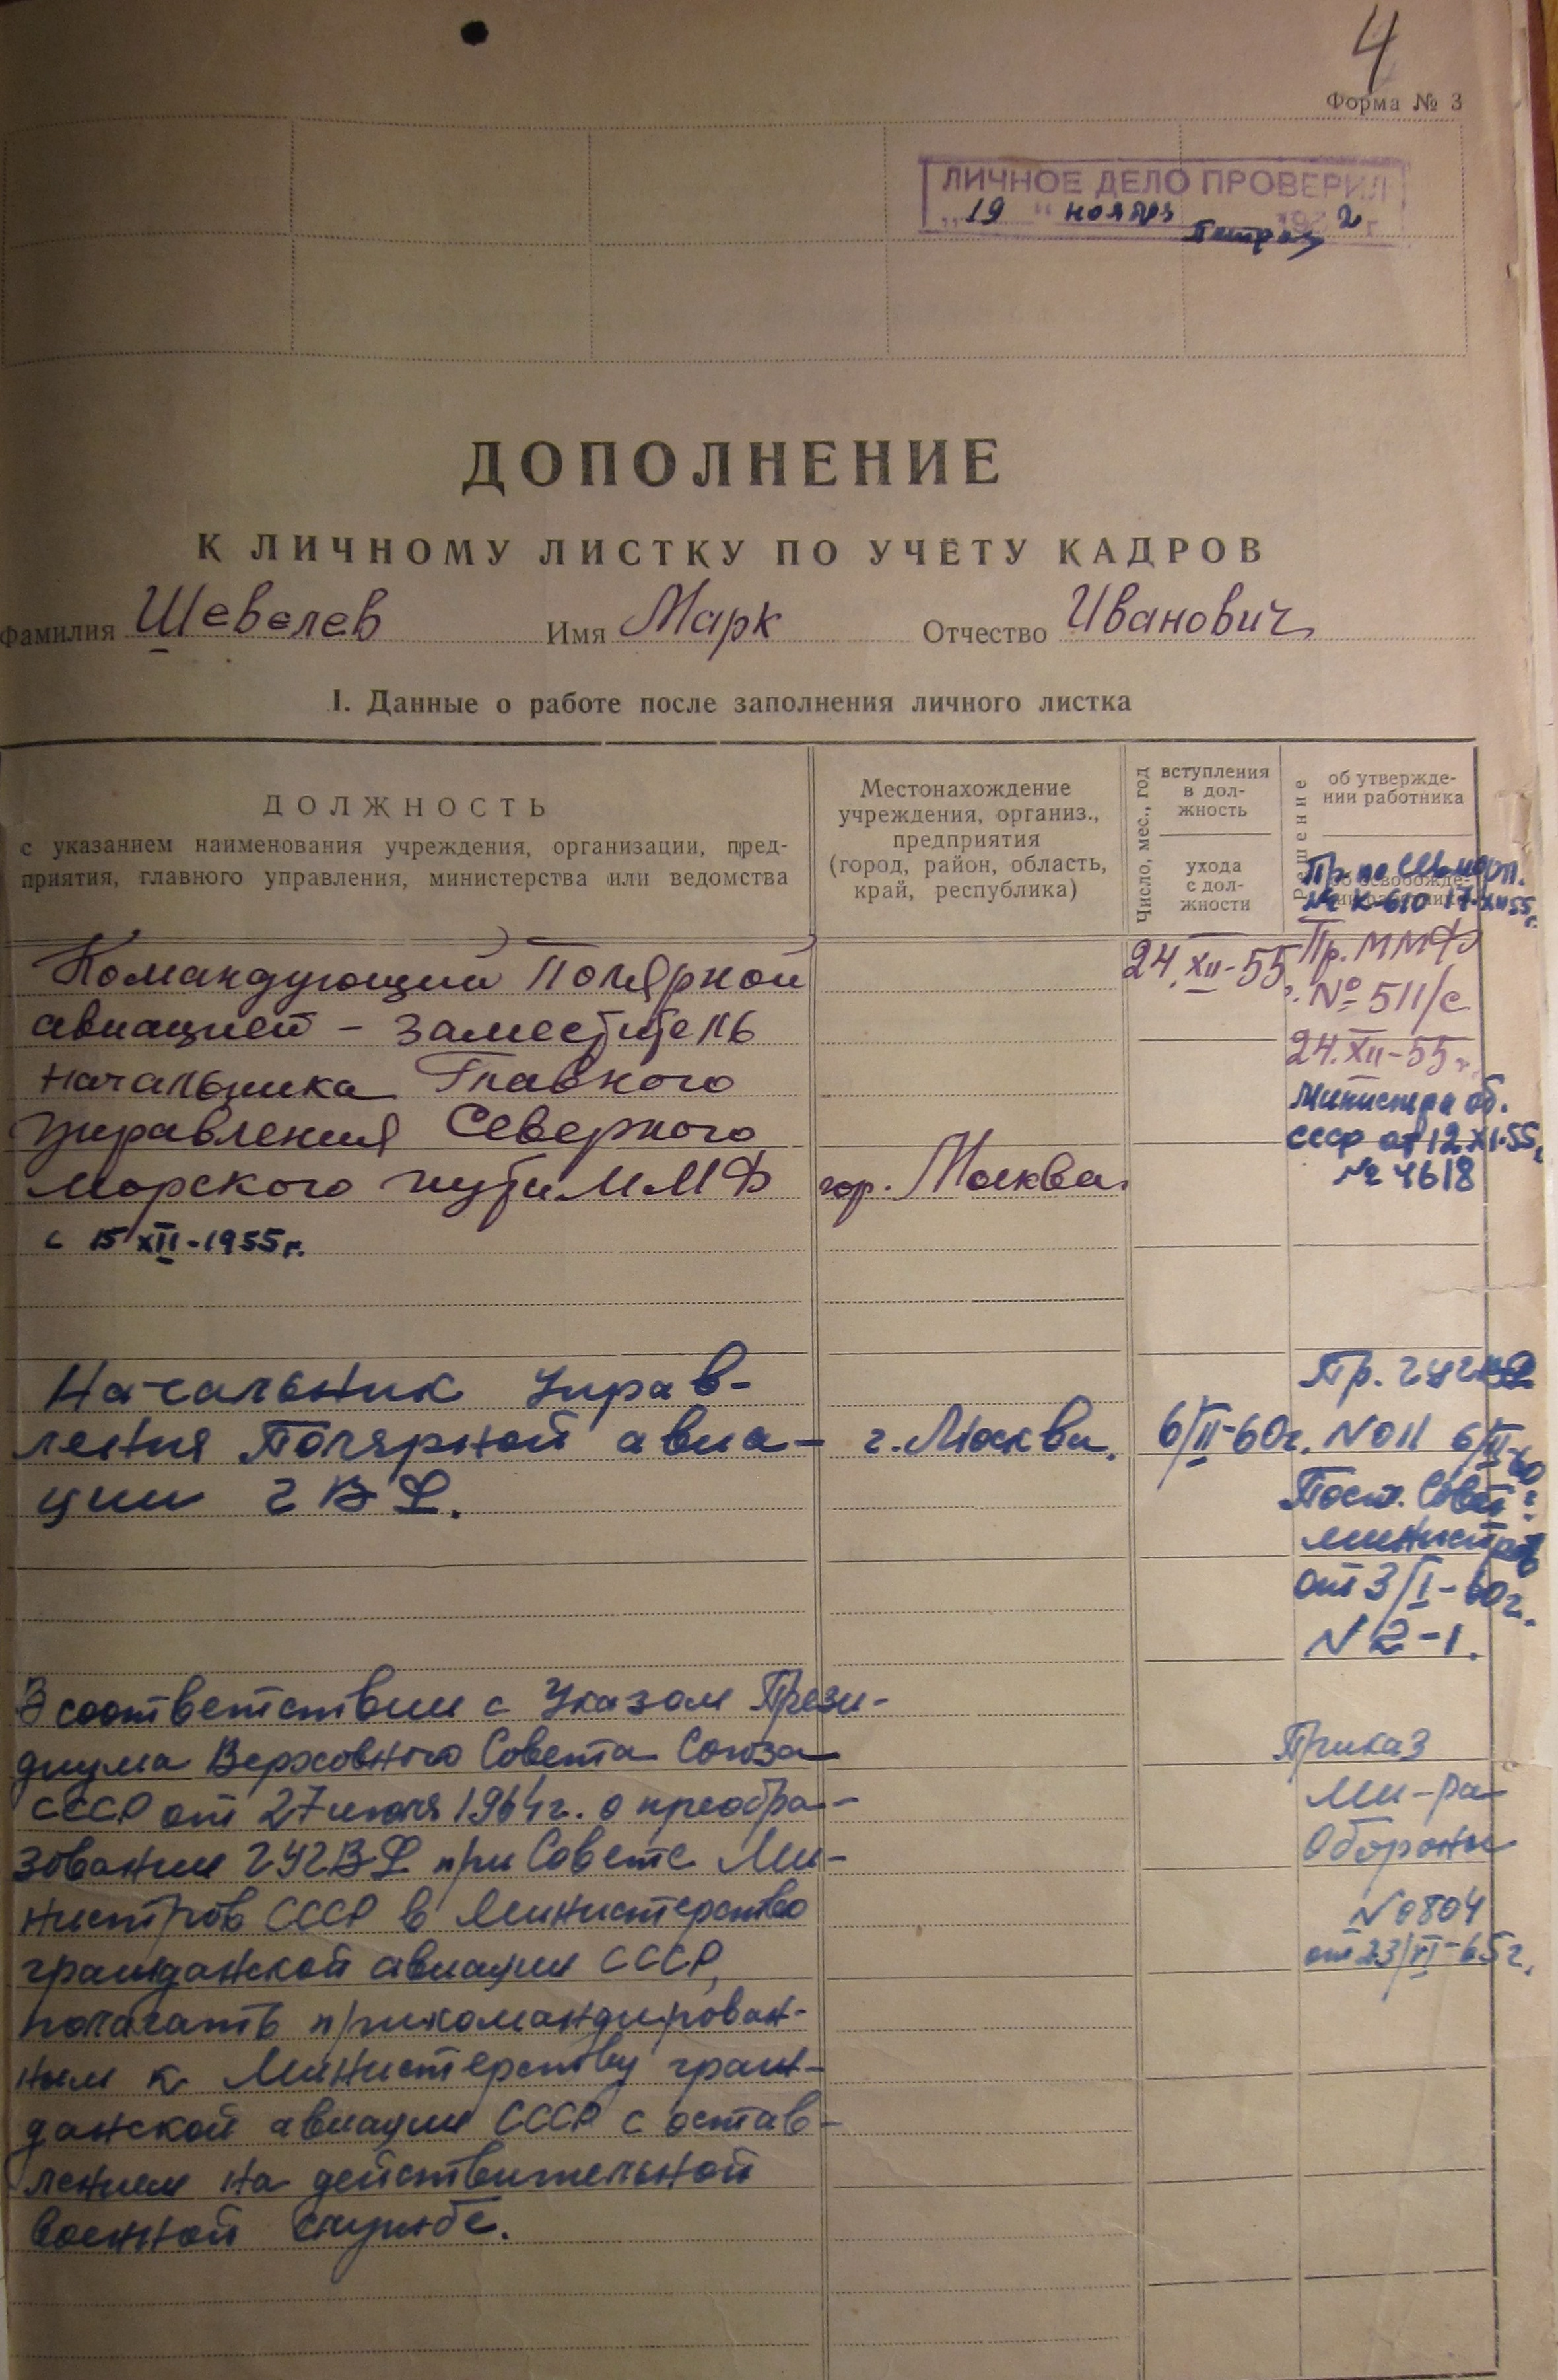 4
Форма № 3
ЛИЧНОЕ ДЕЛО ПРОВЕРИЛ
„19" ноября 2 г
ДОПОЛНЕНИЕ
К ЛИЧНОМУ ЛИСТКУ ПО УЧЁТУ КАДРОВ
Фамилия Шевелев Имя Марк Отчество Иванович
I. Данные о работе после заполнения личного листка
ДОЛЖНОСТЬ
с указанием наименования учреждения, организации, пред-
приятия, главного управления, министерства или ведомства
Местонахождение
учреждения, организ.,
предприятия
(город, район, область,
край, республика)
Число, мес., год
вступления
в дол-
жность
ухода
с дол-
жности
Решение
об утвержде-
нии работника
об освобожде-
нии работника
Пр. по Севморп.
№ К-610 17-XII 55 г.
Командующий Полярной
авиацией – заместитель
начальника Главного
Управления Северного
морского пути ММФ
с 15 XII-1955 г.
гор. Москва.
24.XII-55 г.
Пр. ММФ
№ 511/с
24.XII-55 г.
Министра об.
СССР от 12.XI.55 г.
№ 4618
Начальник Управ-
ления Полярной авиа-
ции ГВФ.
г. Москва.
6/II-60г.
Пр. ГУГВФ
N 011 6/II-60
Пост. Совет
министров
от 3/I-60г.
N 2-1.
В соответствии с Указом Прези-
диума Верховного Совета Союза
СССР от 27 июля 1964г. о преобра-
зовании ГУГВФ при Совете Ми-
нистров СССР в Министерство
гражданской авиации СССР,
полагать прикомандирован-
ным к Министерству граж-
данской авиации СССР с остав-
лением на действительной
военной службе.
Приказ
Ми-ра
Обороны
N 0804
от 23/VI-65г.